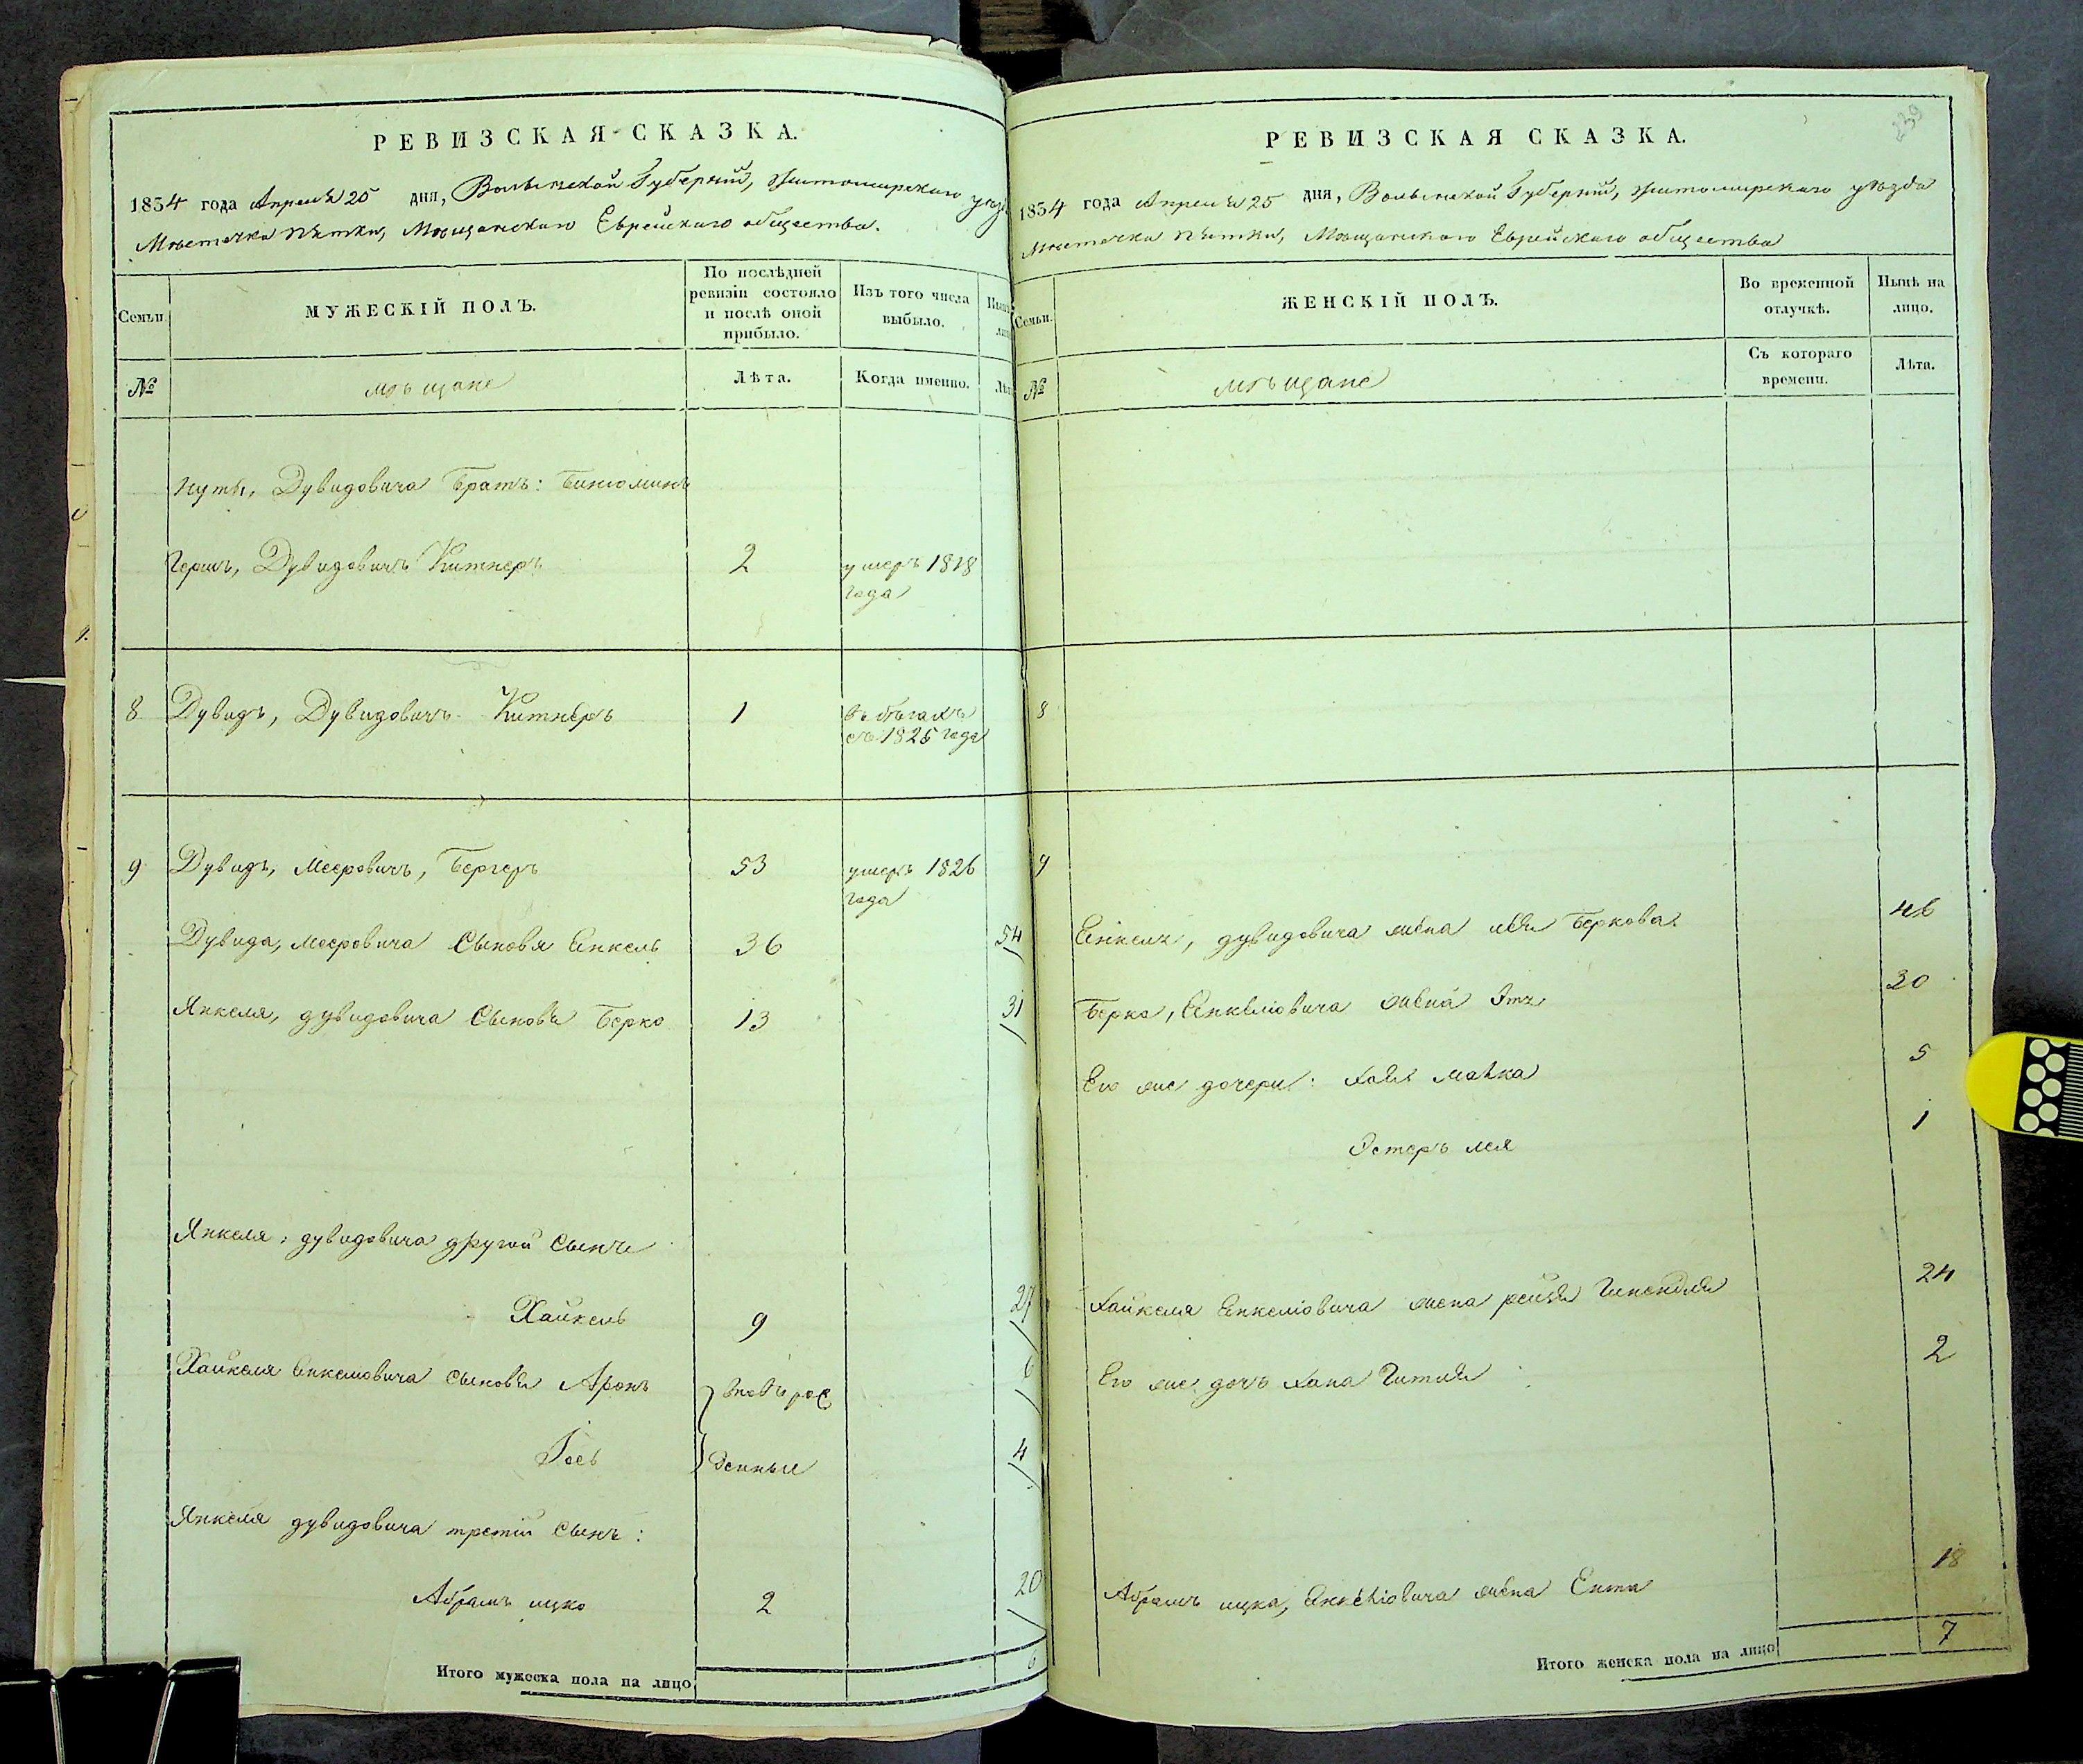 РЕВИЗСКАЯ СКАЗКА.
1834 года Апреля 25 дня, Волынской Губерній, Житомирскаго уез
Мѣстечка Пятки, Мѣщанскаго Еврейскаго общества.
Семьи.
МУЖЕСКІЙ ПОЛЪ.
По послѣдней ревизіи состояло и послѣ оной прибыло.
Изъ того числа выбыло.
№
мѣщане
Лѣта.
Когда именно.
Дувидовича Братъ: Бинюминъ
Гершъ, Дувидовичъ Китнеръ 2 умеръ 1818
года
8 Дувидъ, Дувидовичъ Китнеръ 1 въ бѣгахъ
съ 1825 года
9 Дувидъ, Мееровичъ, Бергеръ 53 умеръ 1826
года
Дувида, Мееровича Сыновя Енкель 36 54
Янкеля, дувидовича Сыновя Берко 13 31
Янкеля, дувидовича другой Сынъ
Хайкель 9 27
Хайкеля Енкелиовича сыновя Аронъ вновь рож 6
Іось денные 4
Янкеля дувидовича третій Сынъ:
Абрамъ ицко 2 20
Итого мужеска пола на лицо 6
239
РЕВИЗСКАЯ СКАЗКА.
1834 года Апреля 25 дня, Волынской Губерній, Житомирскаго уезда
Мѣстечка Пятки, Мѣщанскаго Еврейскаго общества
Семьи.
ЖЕНСКІЙ ПОЛЪ.
Во временной отлучкѣ.
Нынѣ на лицо.
№
мѣщане
Съ котораго времени.
Лѣта.
8
9
Енкеля, дувидовича жена Беркова 46
Берко, Енкелиовича жена 30
Его же дочери: Хая Малка 5
Эстеръ лея 1
Хайкеля Енкелиовича жена рейзя 24
Его же дочъ Хана Гитля 2
Абрамъ ицка, Енкелиовича жена Ента 18
Итого женска пола на лицо 7